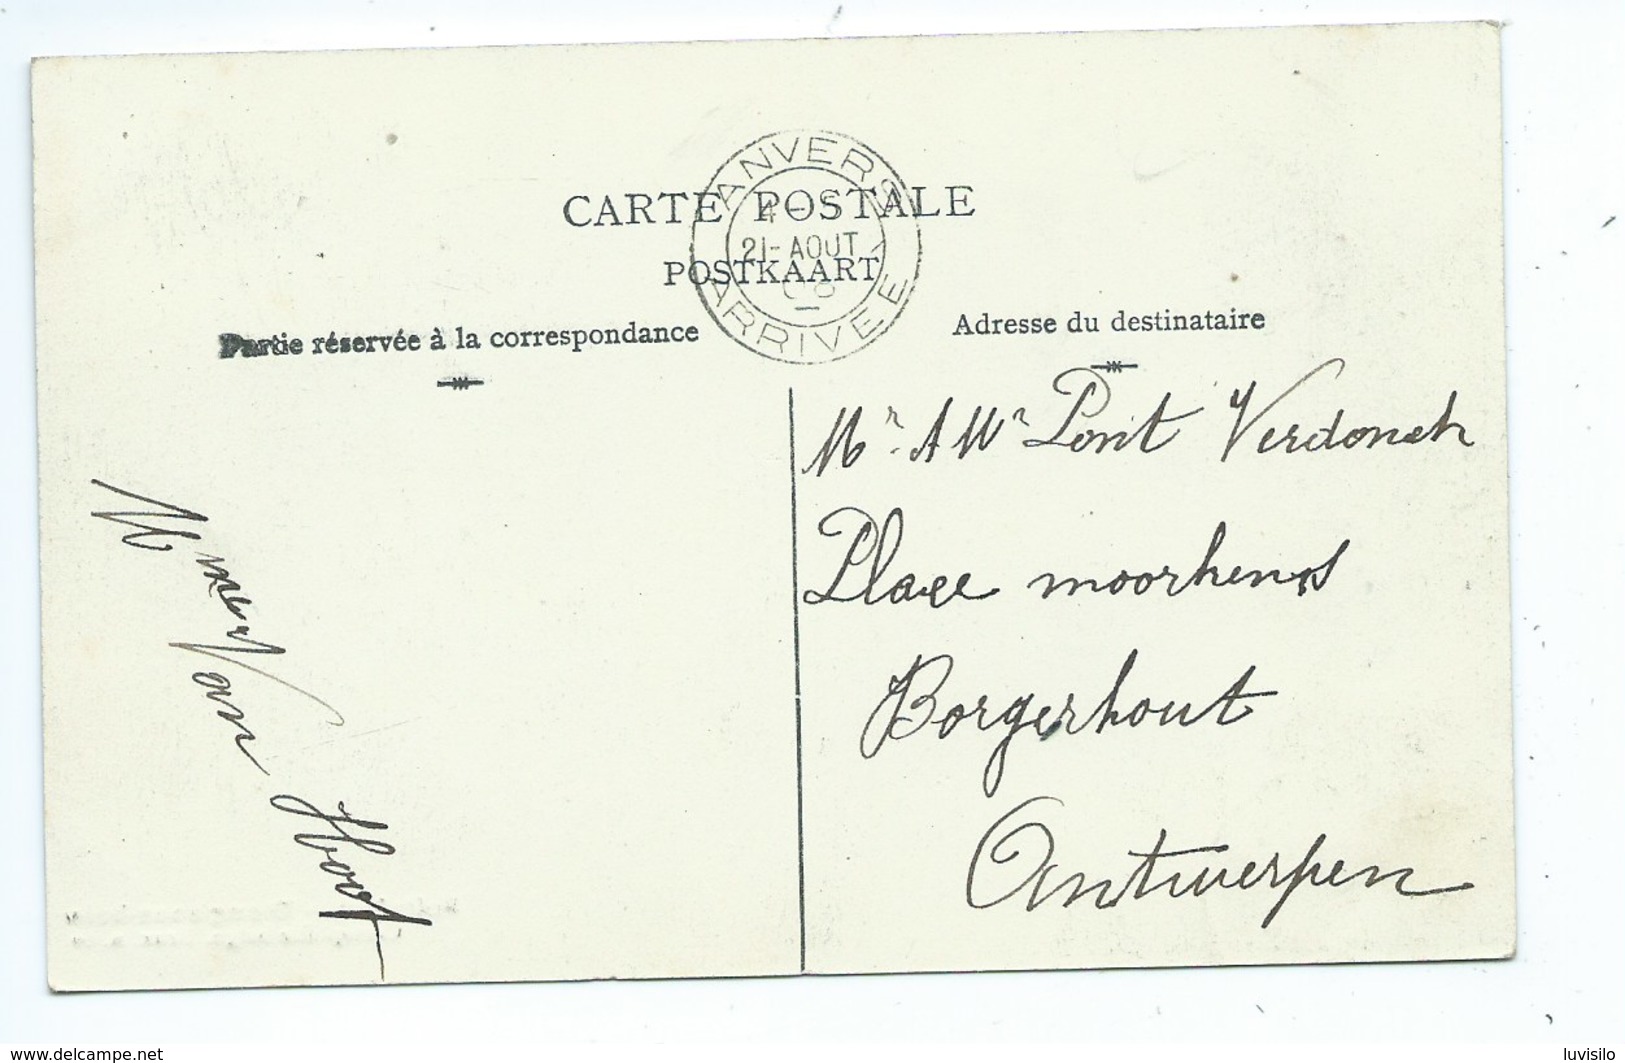 CARTE POSTALE
POSTKAART
ANVERS
21-AOUT
08
ARRIVÉE
Partie réservée à la correspondance
Adresse du destinataire
Mr. A Wn Pont Verdonck
Place moorkens
Borgerhout
Antwerpen
Van Hoof
www.delcampe.net
luvisilo